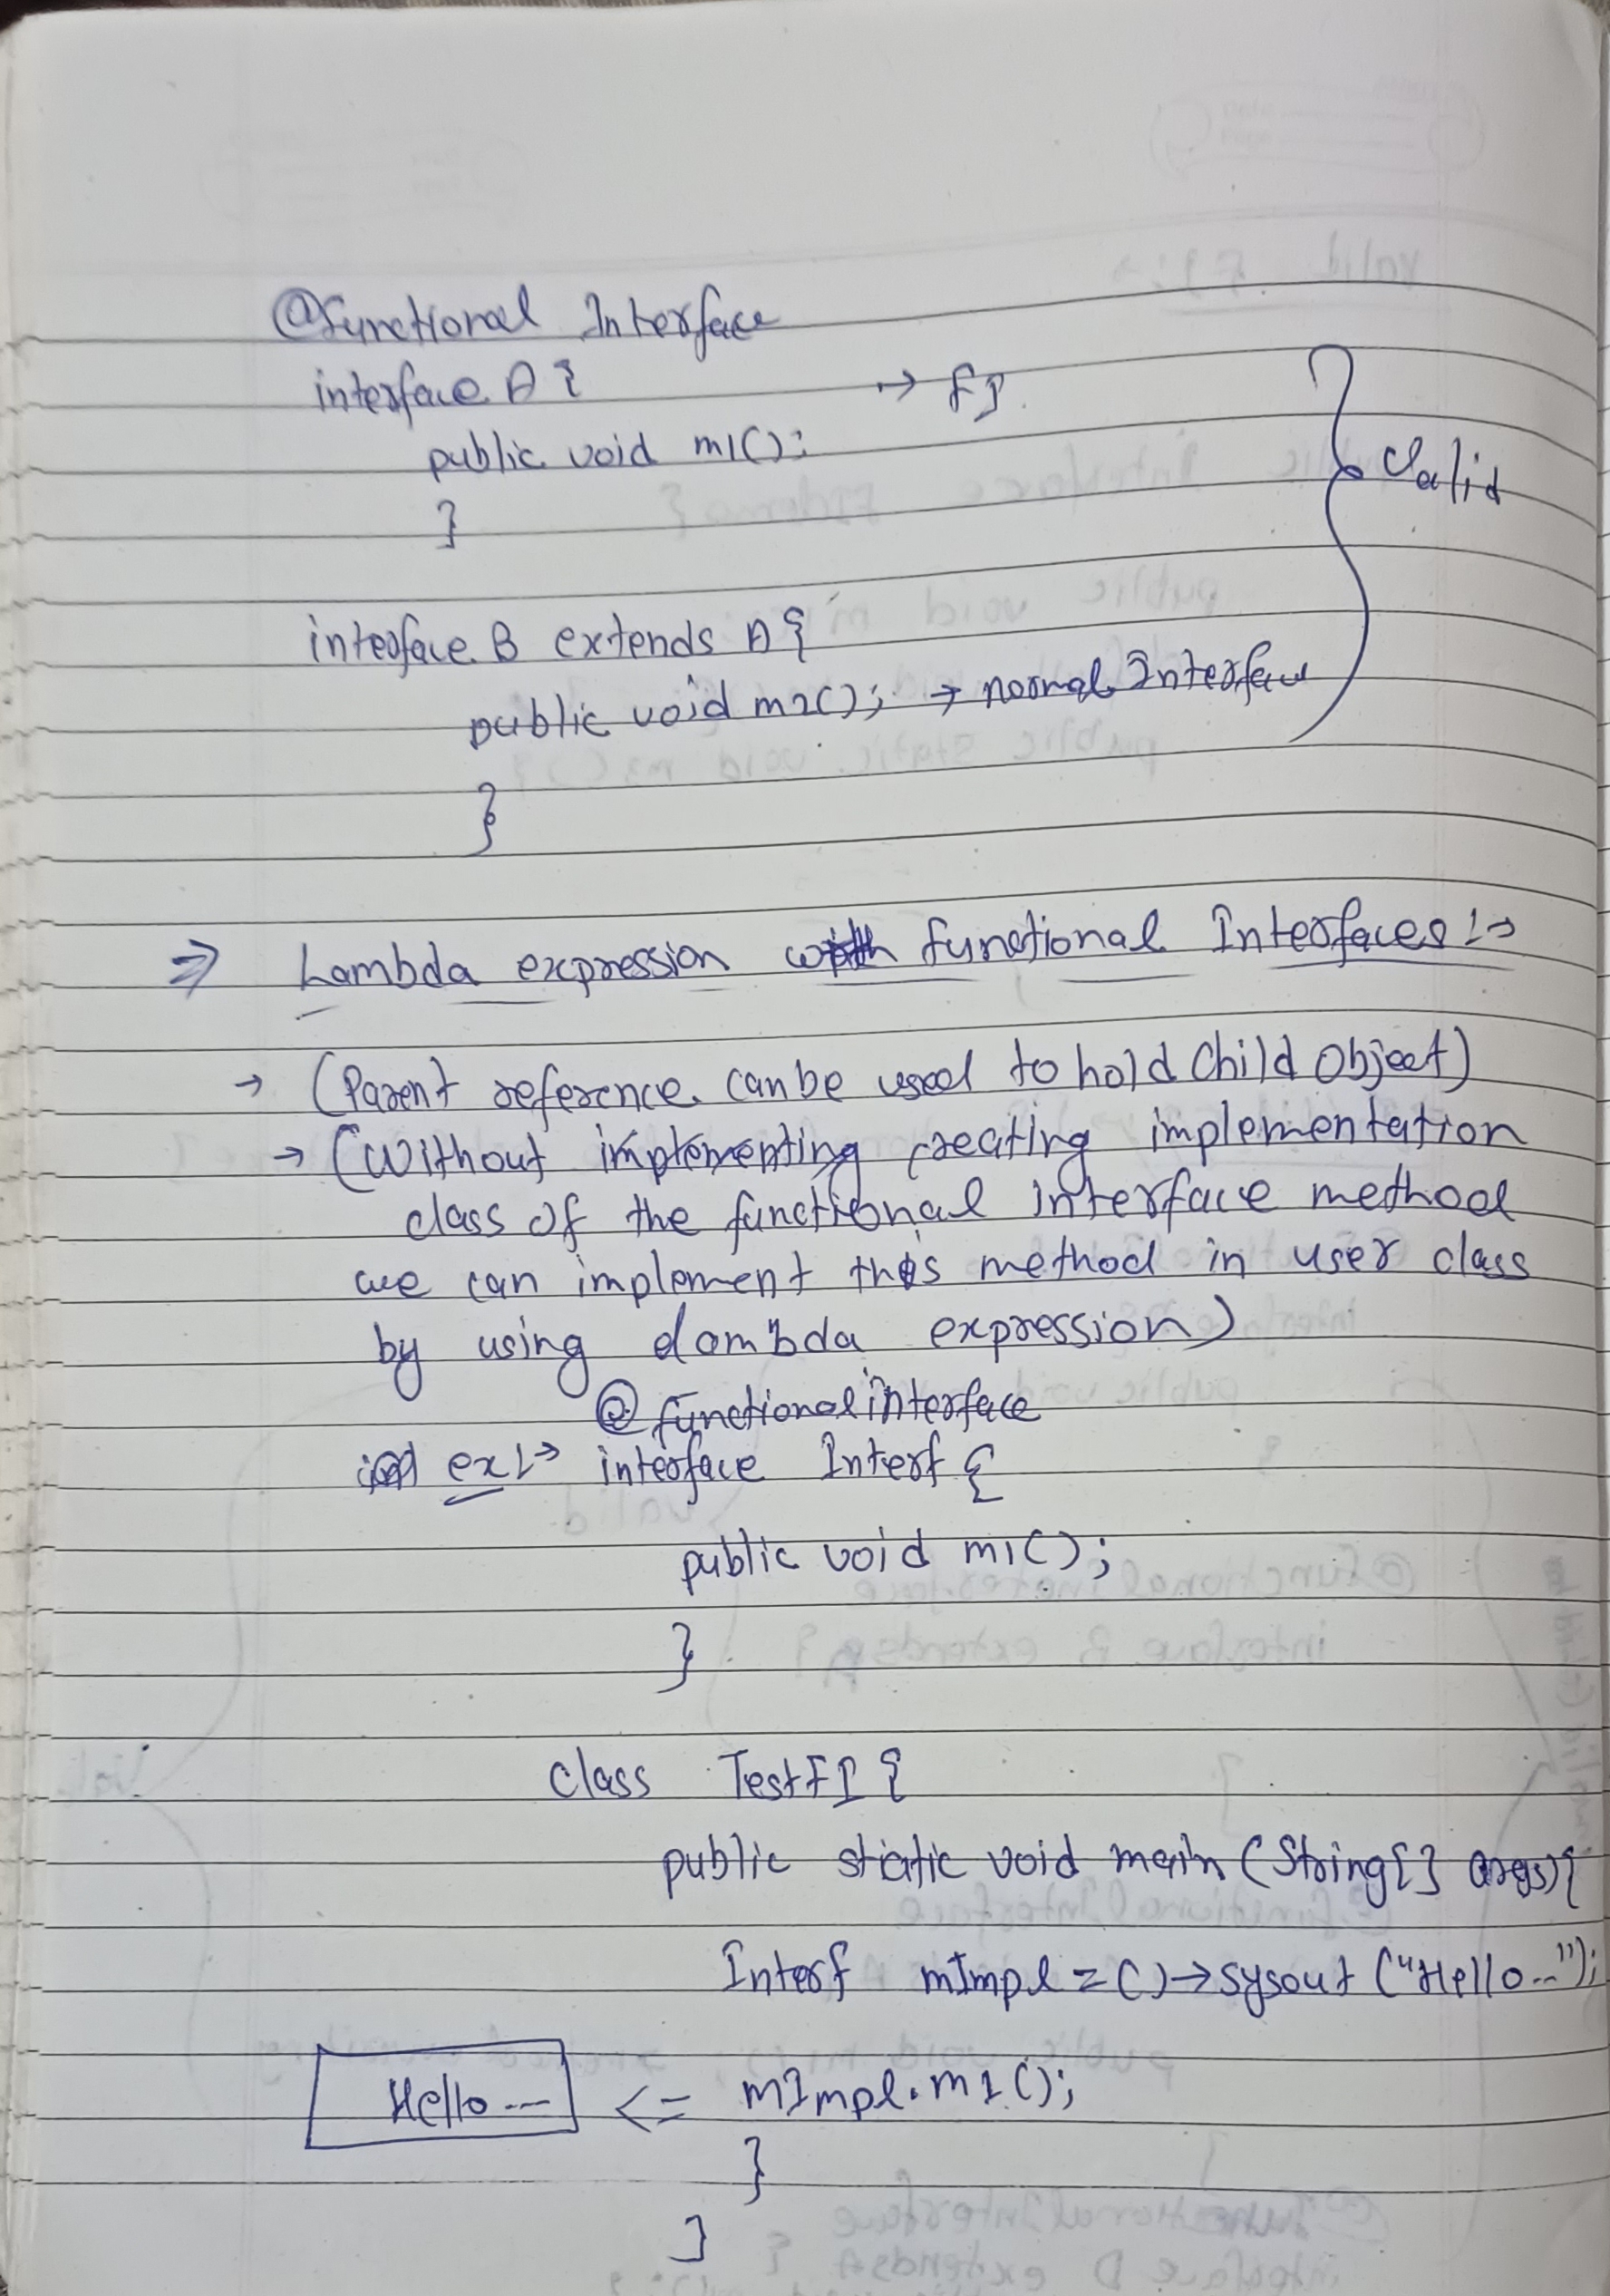 @functional Interface
interface A { → FI
public void m1();
}
Valid
interface B extends A {
public void m2(); → normal Interface
}
⇒ Lambda expression with functional Interfaces :→
→ (Parent reference can be used to hold Child Object)
→ (Without implementing creating implementation
class of the functional interface method
we can implement this method in user class
by using lambda expression)
@functional interface
ex :→ interface Interf {
public void m1();
}
class TestFI {
public static void main (String[] args) {
Interf mImpl = () → sysout ("Hello..");
Hello --- <= mImpl.m1();
}
}